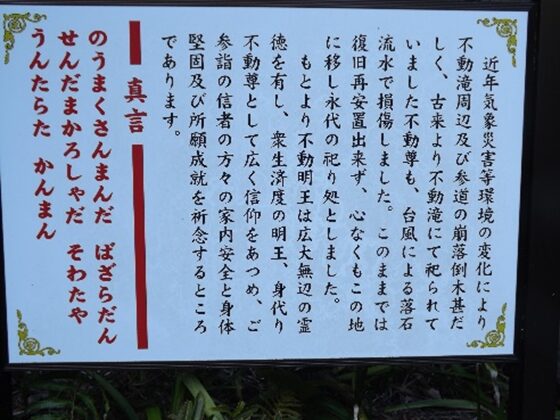 近年気象災害等環境の変化により
不動滝周辺及び参道の崩落倒木甚だ
しく、古来より不動滝にて祀られて
いました不動尊も、台風による落石
流水で損傷しました。このままでは
復旧再安置出来ず、心なくもこの地
に移し永代の祀り処としました。
もとより不動明王は広大無辺の霊
徳を有し、衆生済度の明王、身代り
不動尊として広く信仰をあつめ、ご
参詣の信者の方々の家内安全と身体
堅固及び所願成就を祈念するところ
であります。
真言
のうまくさんまんだ ばざらだん
せんだまかろしゃだ そわたや
うんたらた かんまん